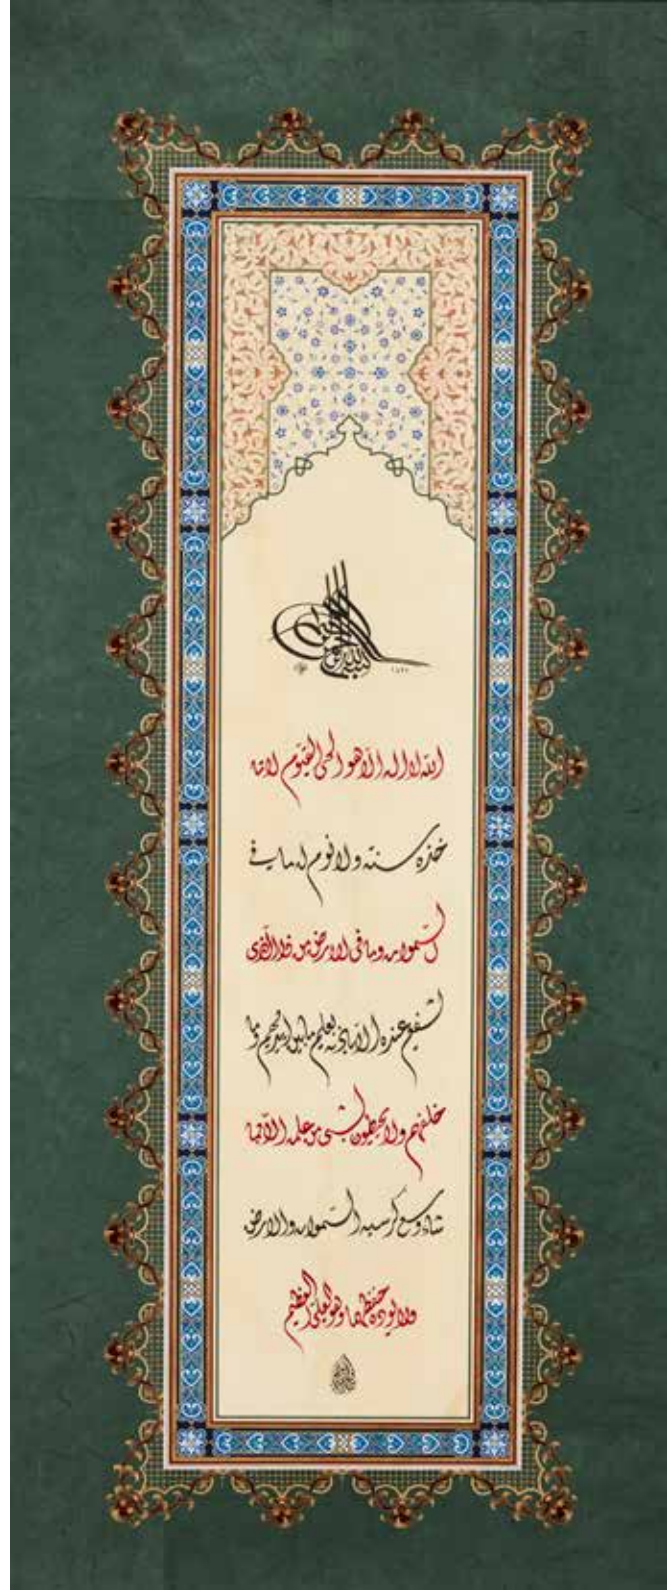 بسم الله الرحمن الرحيم
الله لا اله الا هو الحي القيوم لا تا
خذه سنة ولا نوم له ما في
السموات وما في الارض من ذا الذي
يشفع عنده الا باذنه يعلم ما بين ايديهم وما
خلفهم ولا يحيطون بشي من علمه الا بما
شاء وسع كرسيه السموات والارض
ولا يوده حفظهما وهو العلي العظيم